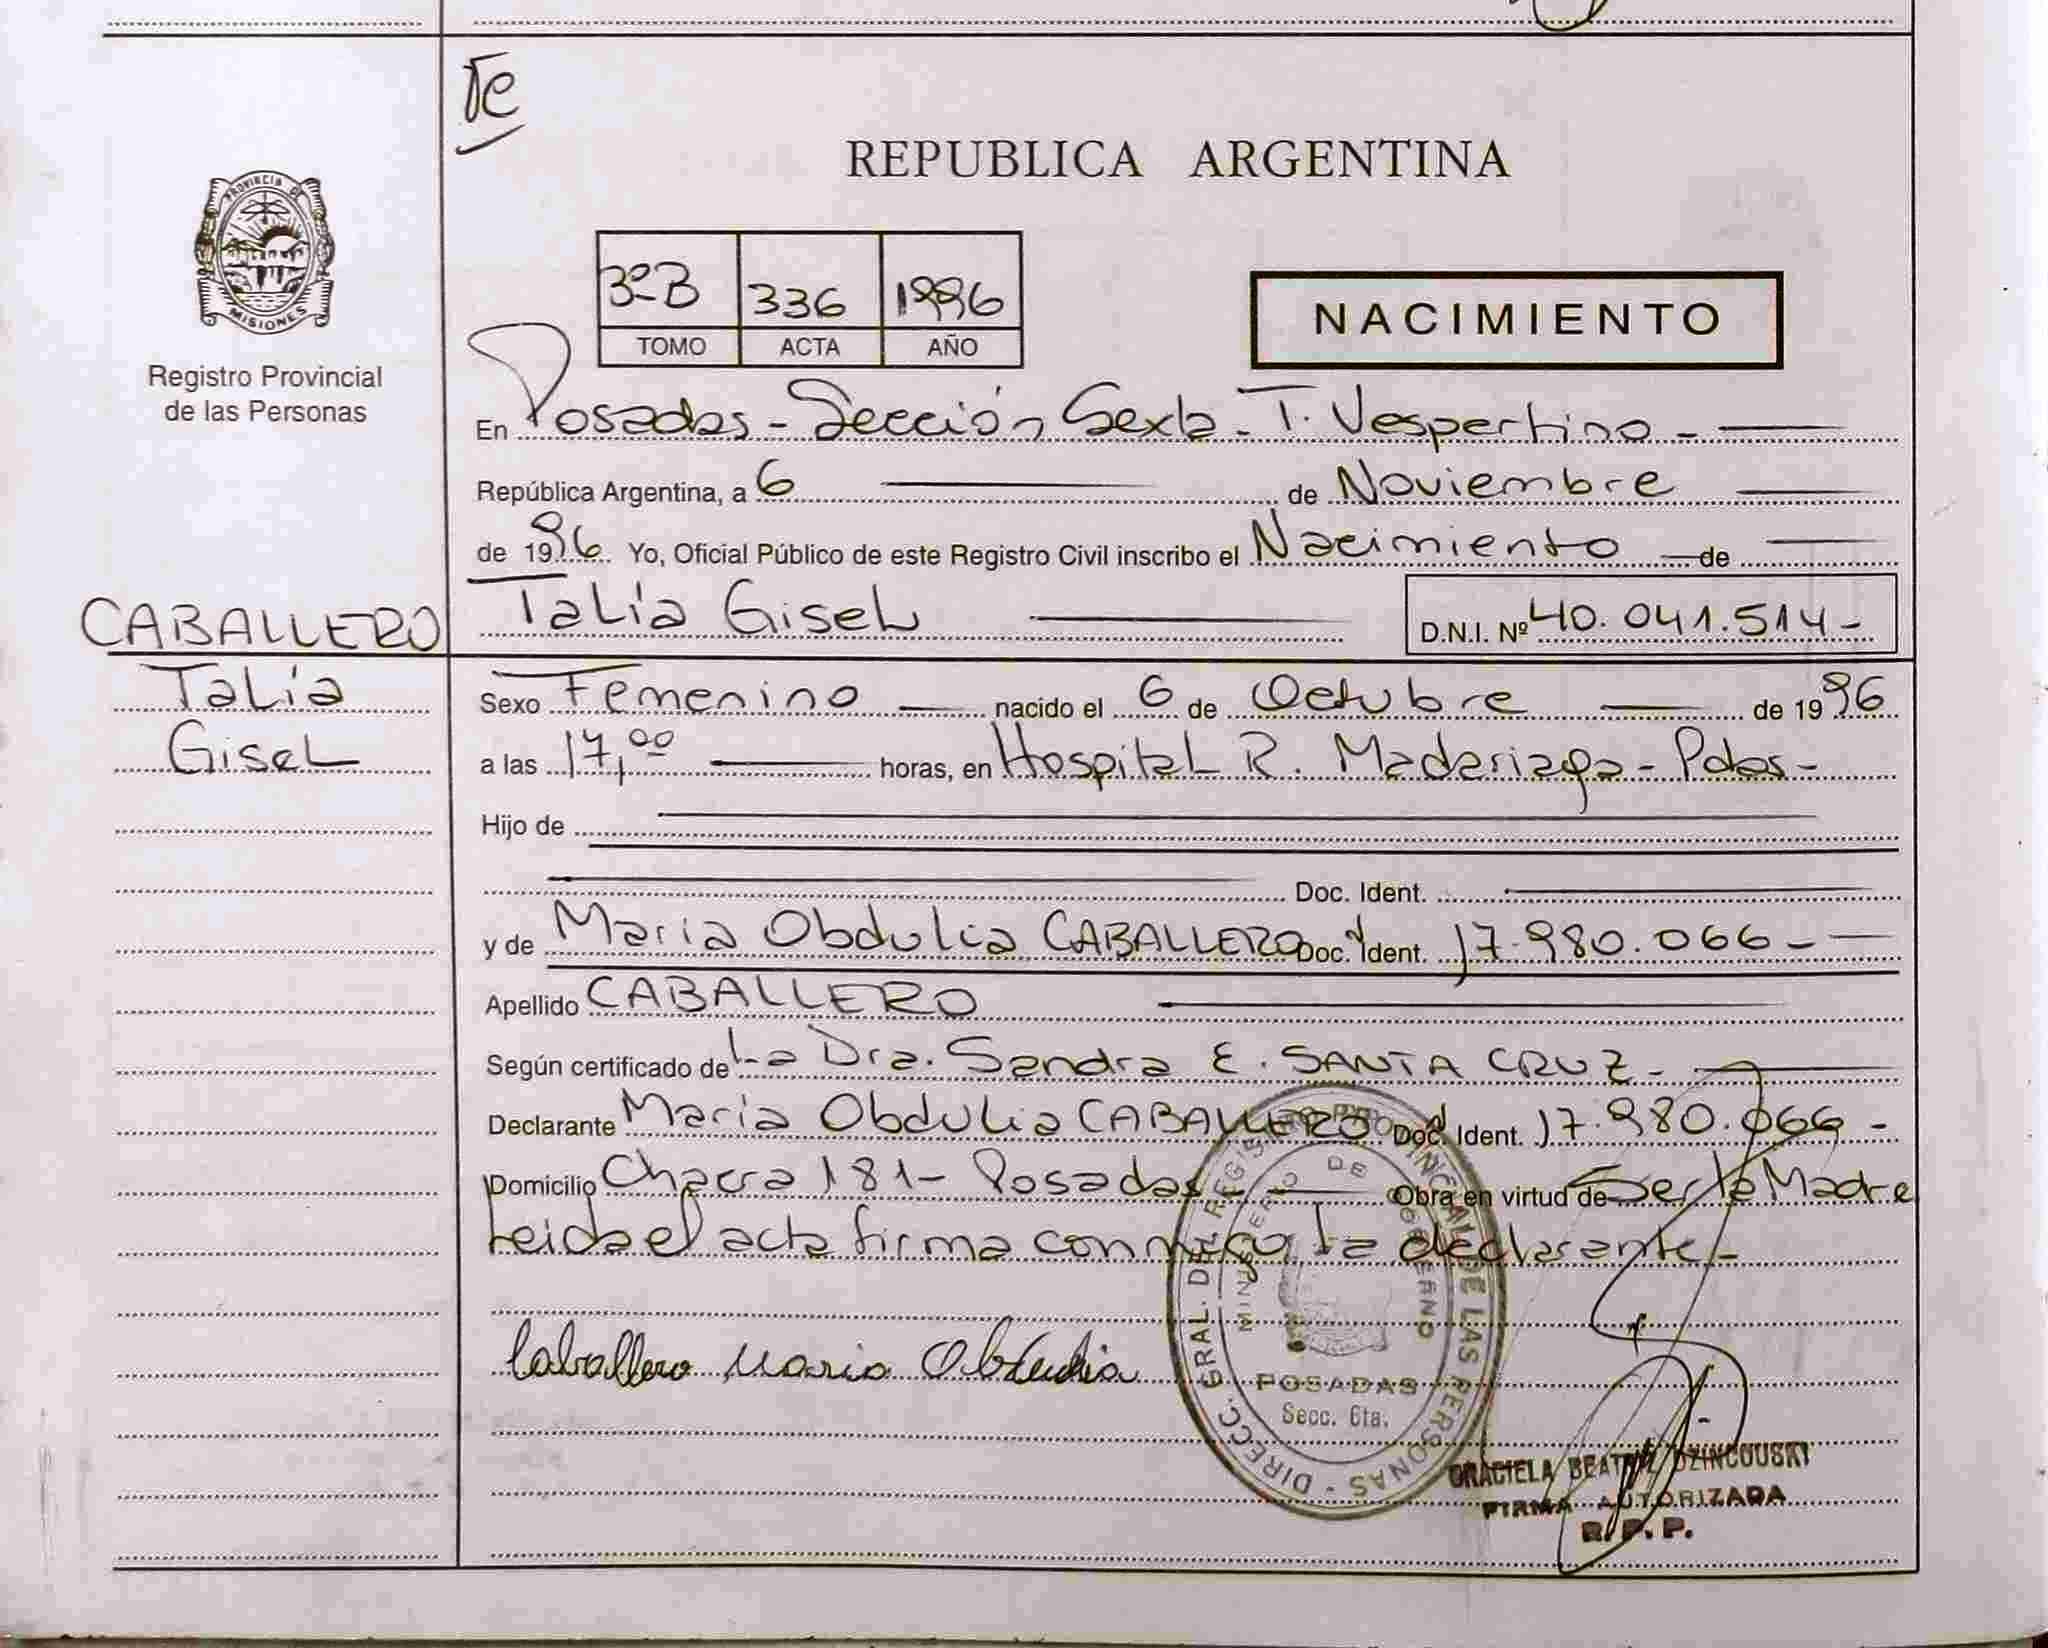 Te
REPUBLICA ARGENTINA
PROVINCIA DE
MISIONES
Registro Provincial
de las Personas
3º-B 336 1996
TOMO ACTA AÑO
NACIMIENTO
En Posadas - Sección Sexta - T. Vespertino -
República Argentina, a 6 de Noviembre
de 1996 Yo, Oficial Público de este Registro Civil inscribo el Nacimiento de
CABALLERO
Talía
Gisel
Talía Gisel D.N.I. Nº 40.041.514-
Sexo Femenino nacido el 6 de Octubre de 1996
a las 17,00 horas, en Hospital R. Madariaga - Pdas -
Hijo de
Doc. Ident.
y de Maria Obdulia CABALLERO Doc. Ident. 17.980.066 -
Apellido CABALLERO
Según certificado de La Dra. Sandra E. SANTA CRUZ -
Declarante María Obdulia CABALLERO Doc. Ident. 17.980.066 -
Domicilio Chacra 181 - Posadas - Obra en virtud de Ser la Madre
Leida el acta firma conmigo la declarante -
Caballero Maria Obdulia
DIRECC. GRAL. DEL REGISTRO PROVINCIAL DE LAS PERSONAS -
MINISTERIO DE GOBIERNO
POSADAS
Secc. 6ta.
GRACIELA BEATRIZ DZINCOUSKI
FIRMA AUTORIZADA
R. P. P.